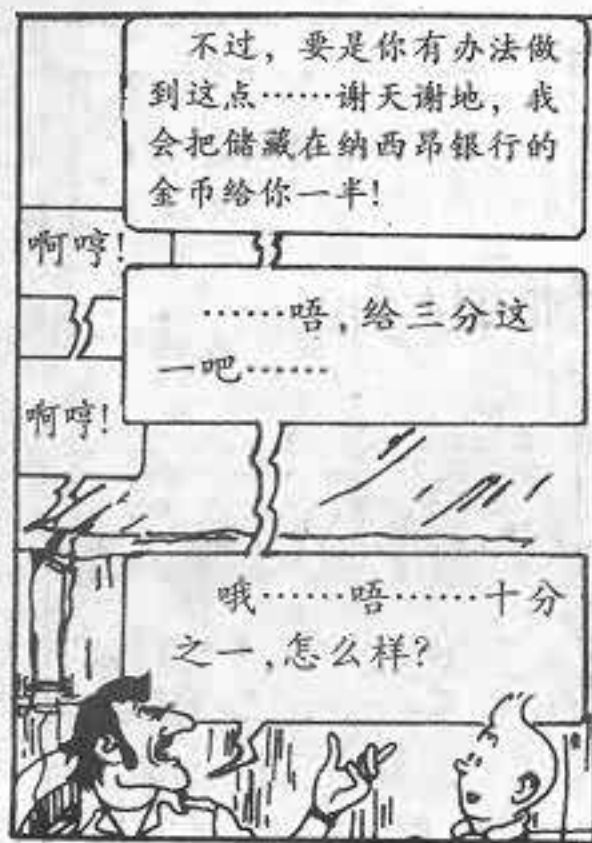 不过，要是你有办法做
到这点……谢天谢地，我
会把储藏在纳西昂银行的
金币给你一半！
啊哼！
……唔，给三分这
一吧……
啊哼！
哦……唔……十分
之一，怎么样？